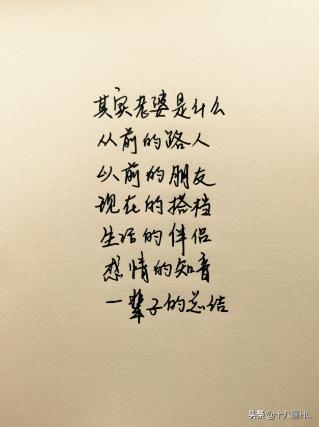 其实老婆是什么
从前的路人
以前的朋友
现在的搭档
生活的伴侣
感情的知音
一辈子的总结
头条@十八画HL